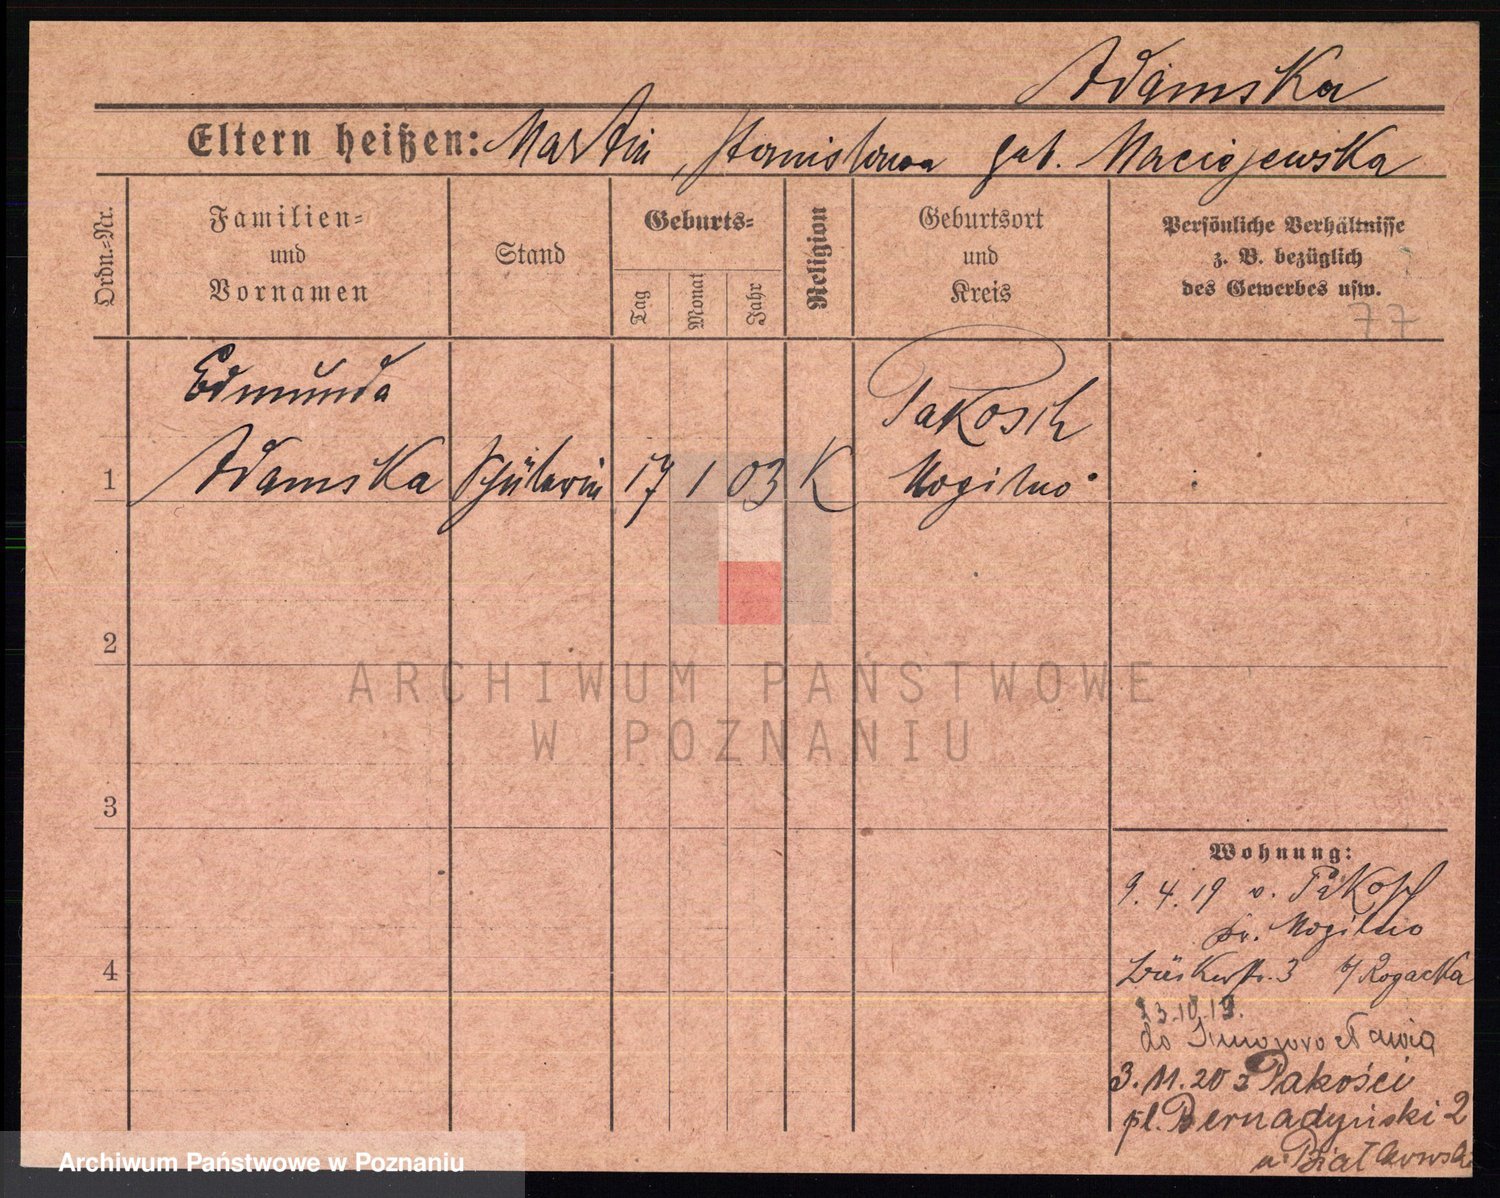 Adamska
Eltern heißen: Martin, Stanislawa geb. Maciejewska
Ordn.-Nr.
Familien-
und
Vornamen
Stand
Geburts-
Tag
Monat
Jahr
Religion
Geburtsort
und
Kreis
Persönliche Verhältnisse
z. B. bezüglich
des Gewerbes usw.
77
Edmunda
Pakosch
1 Adamska Schülerin 17 1 03 K Mogilno
2
3
4
Wohnung:
9. 4. 19 v. Pakosch
Kr. Mogilno
3 b/ Rogacka
23.10.19.
do Inowrocławia
3. 11. 20 z Pakości
pl. Bernadyński 2
u. Białkowska
ARCHIWUM PAŃSTWOWE
W POZNANIU
Archiwum Państwowe w Poznaniu